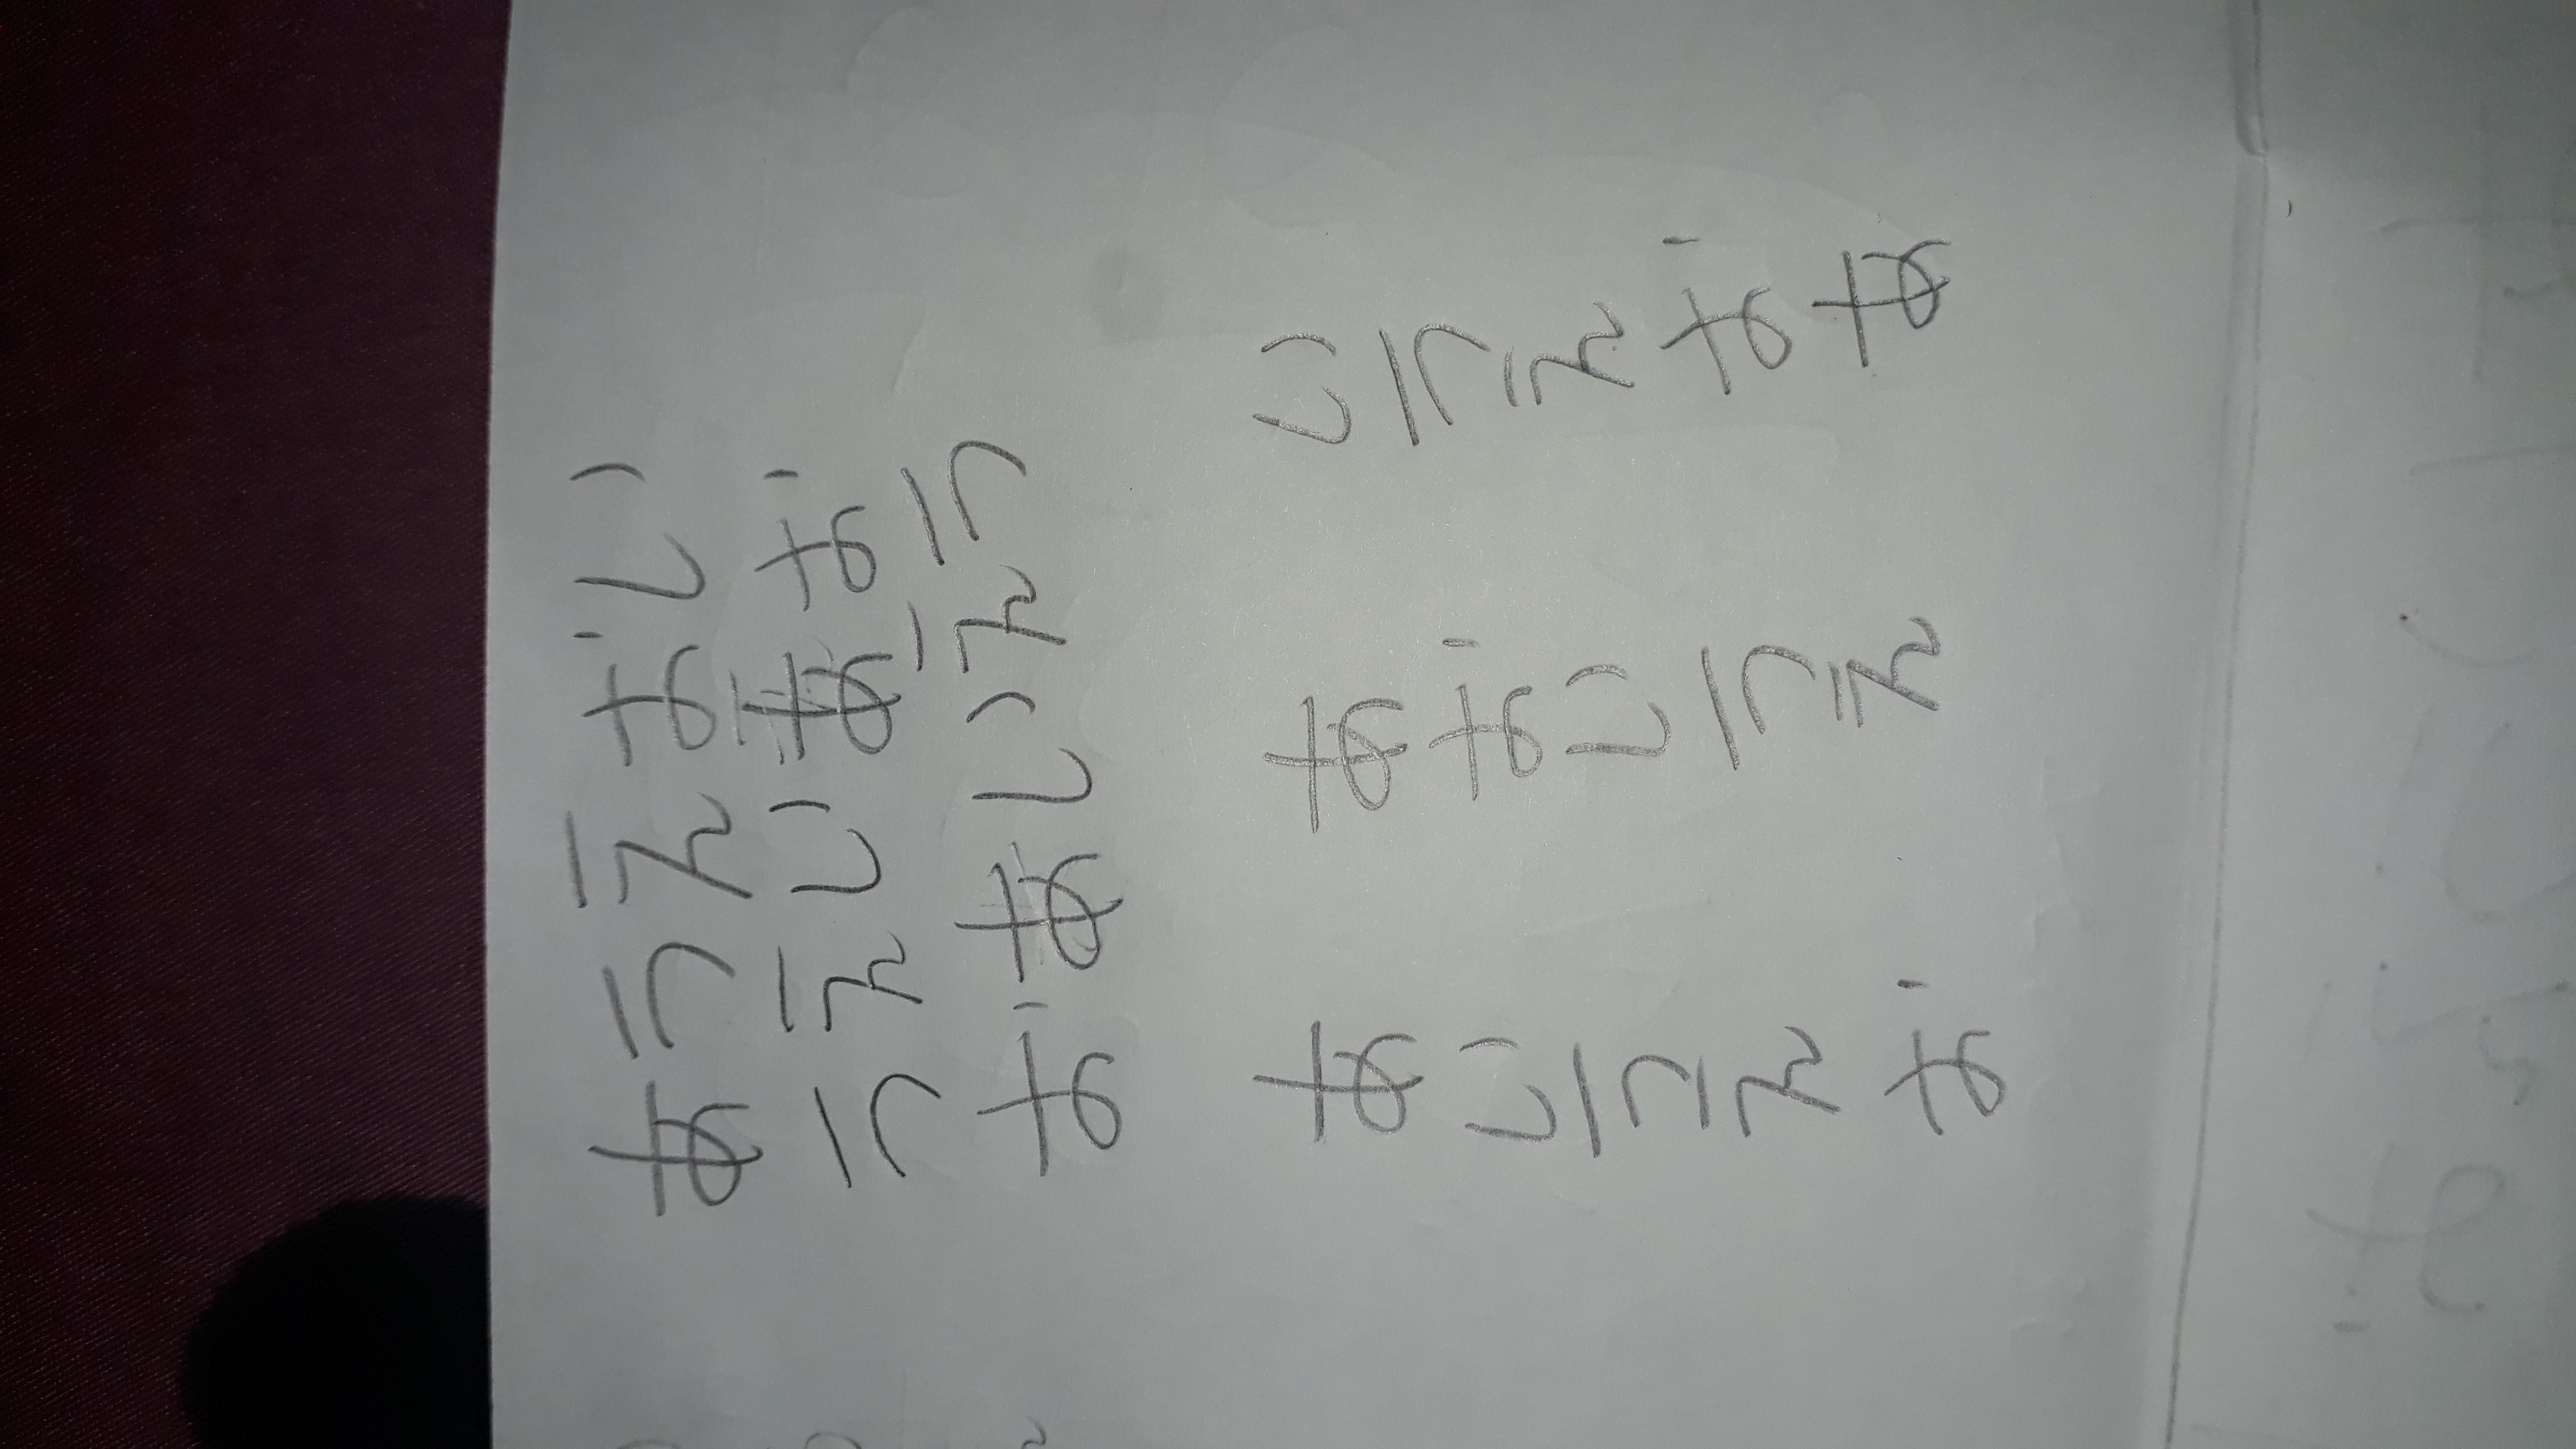 あうえおい
うえいあお
おあいえう
あいうえお
あおいうえ
いうえおあ